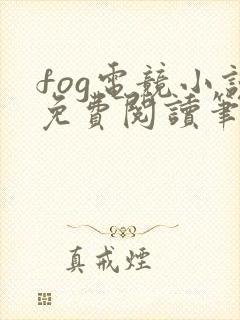 fog電競小說
免費閱讀筆
真戒煙